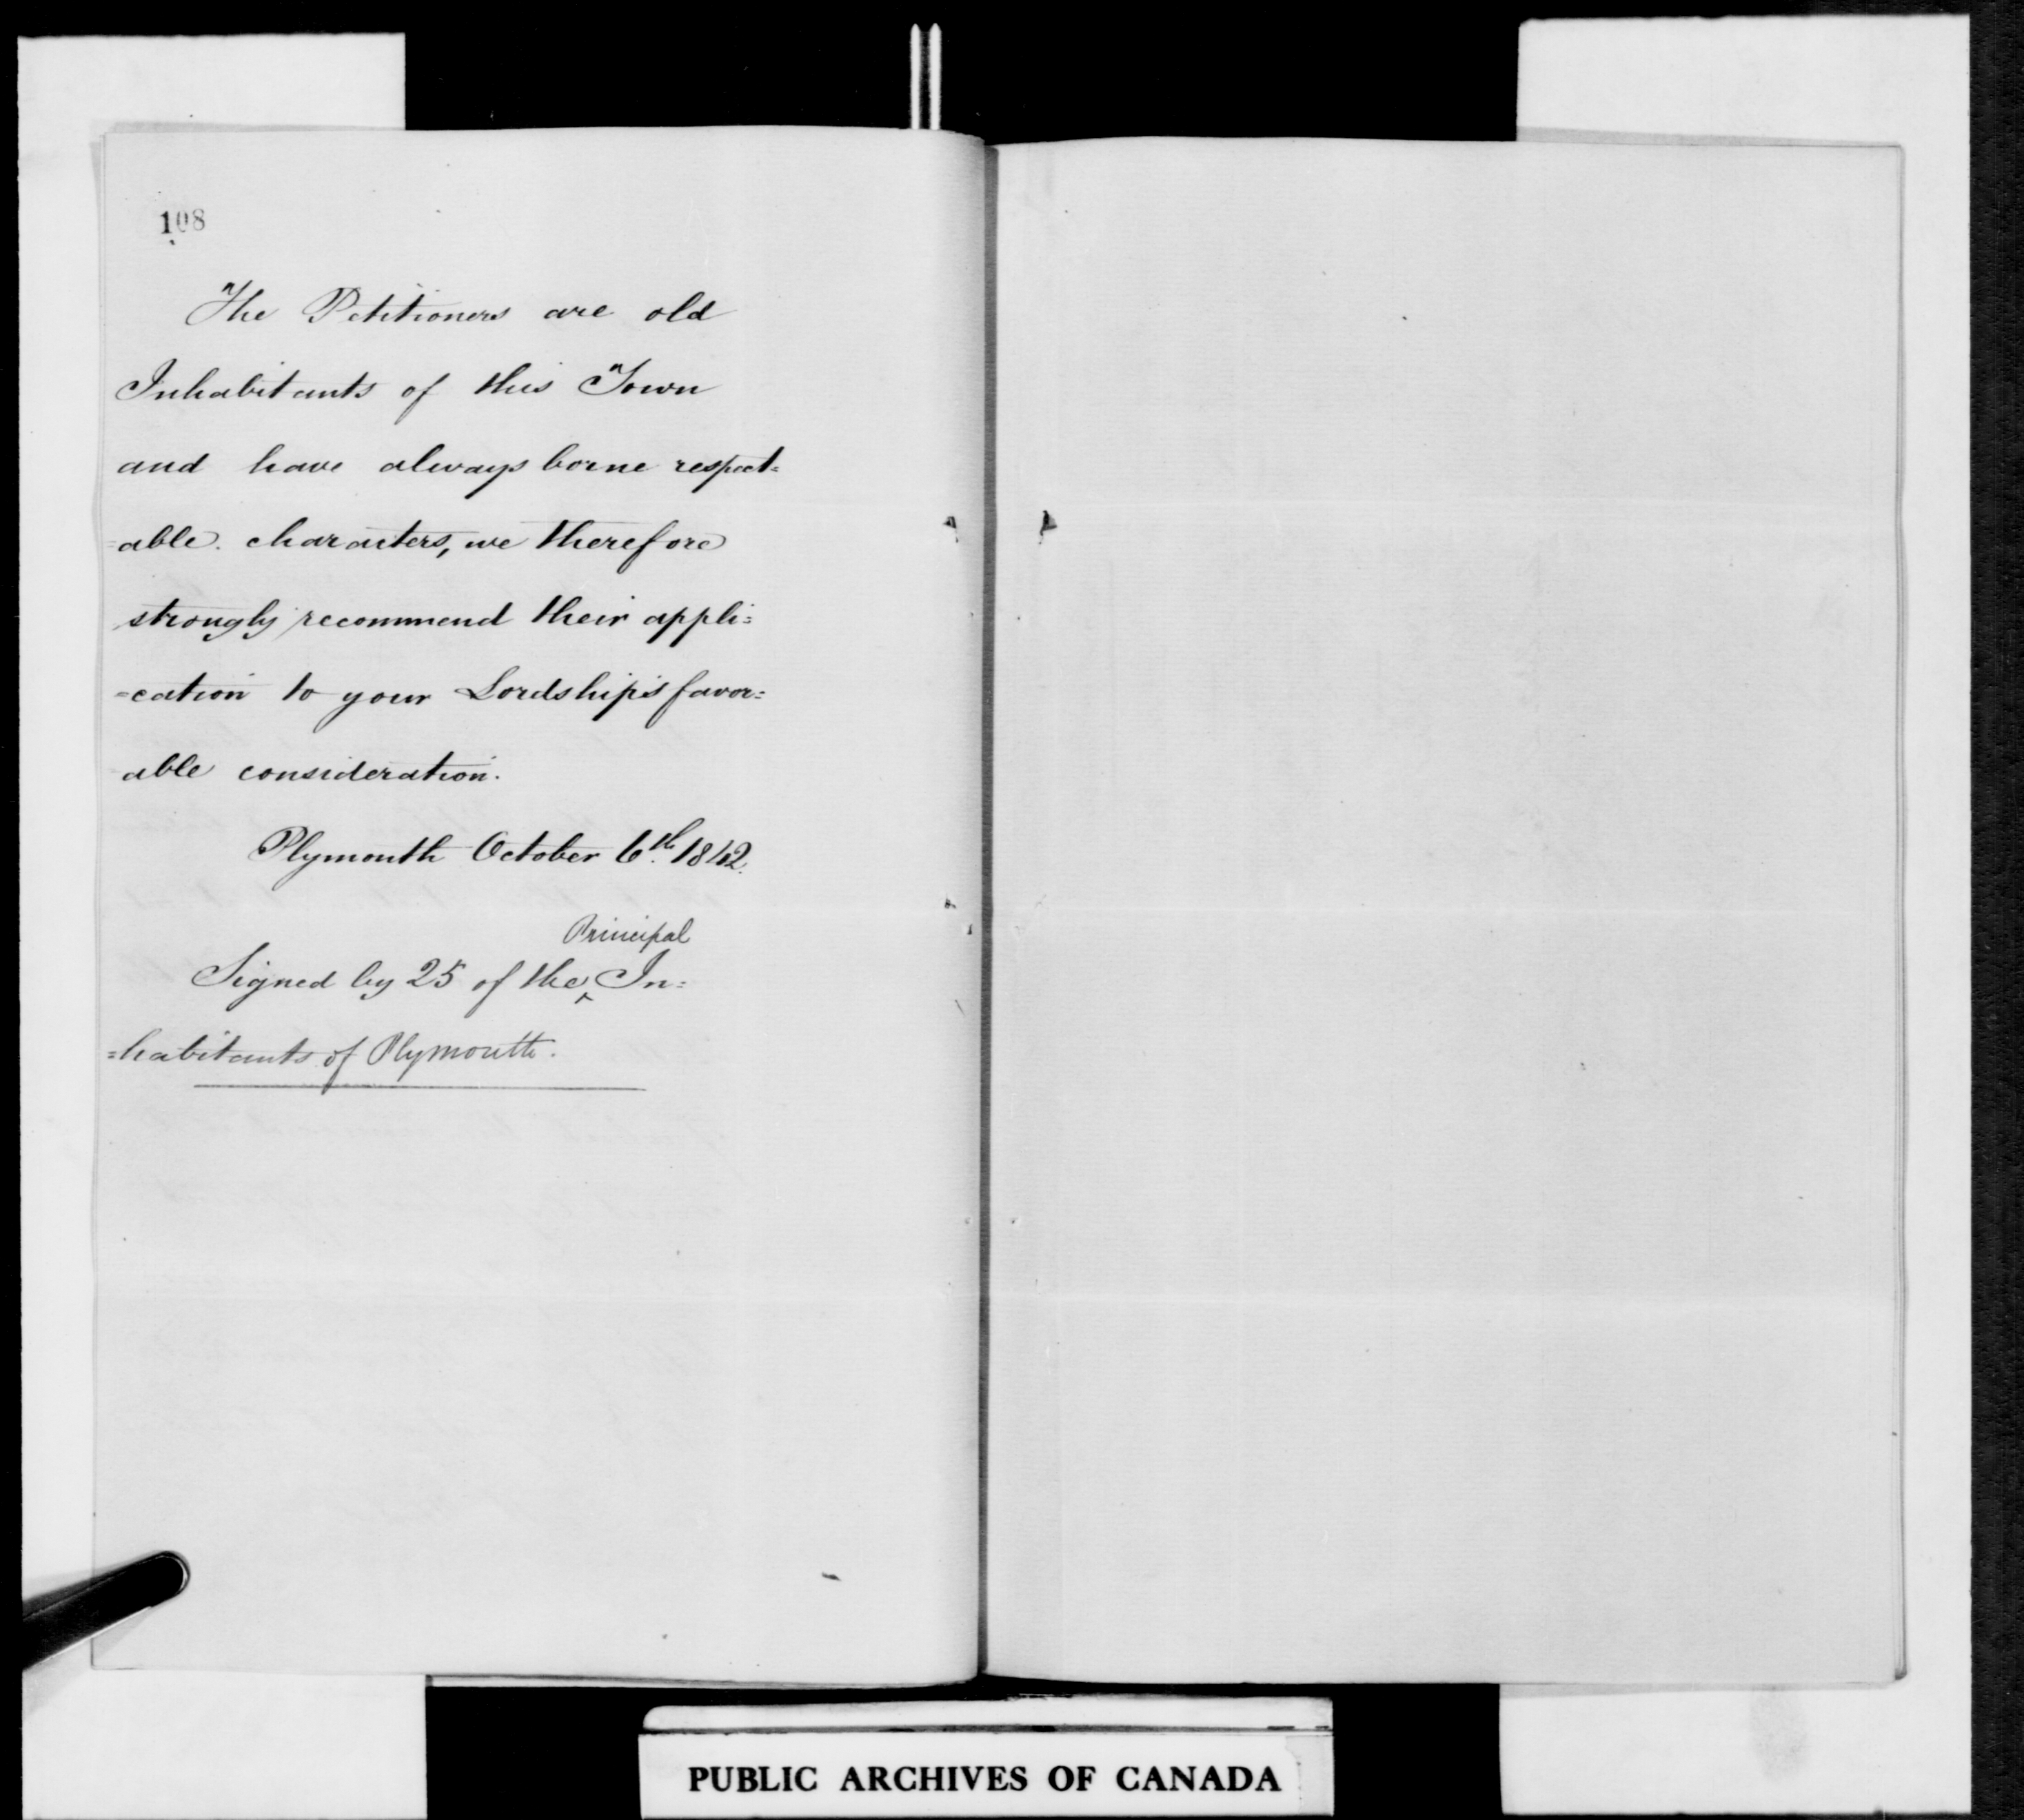 108
The Petitioners are old
Inhabitants of this Town
and have always borne respect=
=able characters, we therefore
strongly recommend their appli=
=cation to your Lordship's favor=
able consideration.
Plymouth October 6th. 1842.
Principal
Signed by 25 of the ^ In=
=habitants of Plymouth.
PUBLIC ARCHIVES OF CANADA